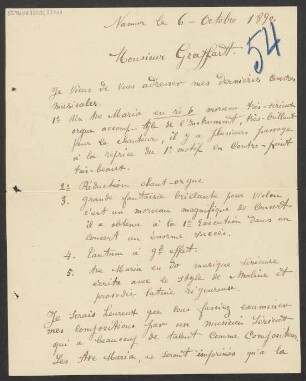 Namur le 6 - Octobre 1890
54
Monsieur Graffart.
Je viens de vous adresser mes dernières œuvres
musicales.
1º Un Ave Maria en ré b morceau très-sérieux
orgue accomp. style de l'instrument, très-brillant
pour le chanteur, il y a plusieurs passages
à la reprise du 1er motif en contre-point
très-beaux.
2º Réduction chant-orgue
3. grande fantaisie brillante pour Violon
c'est un morceau magnifique de concert
il a obtenu à la 1e Exécution dans un
concert un énorme succès.
4. Tantum à gd effet.
5. Ave Maria en do musique sérieuse
écrite avec le style de Malines et
prosodie latine rigoureuse.
Je serais heureux que vous fassiez examiner
mes compositions par un musicien sérieux
qui a beaucoup de talent comme compositeur
Les Ave Maria, ne seront imprimés qu'à la